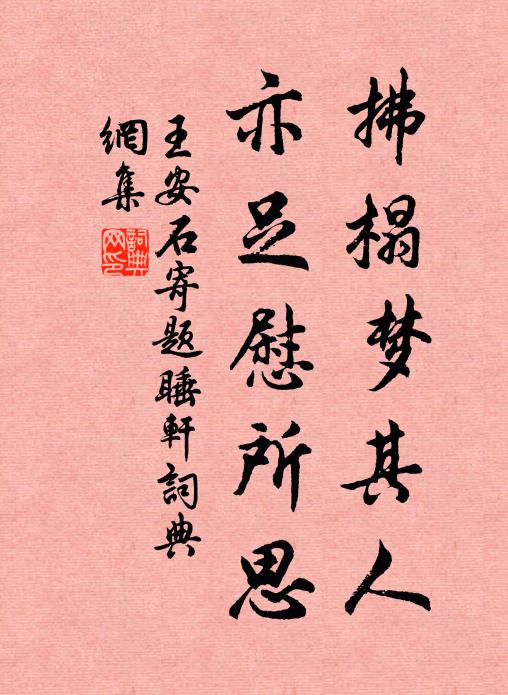 拂榻梦其人
亦足慰所思
王安石寄题睡軒詞典
網集
詞典
网印